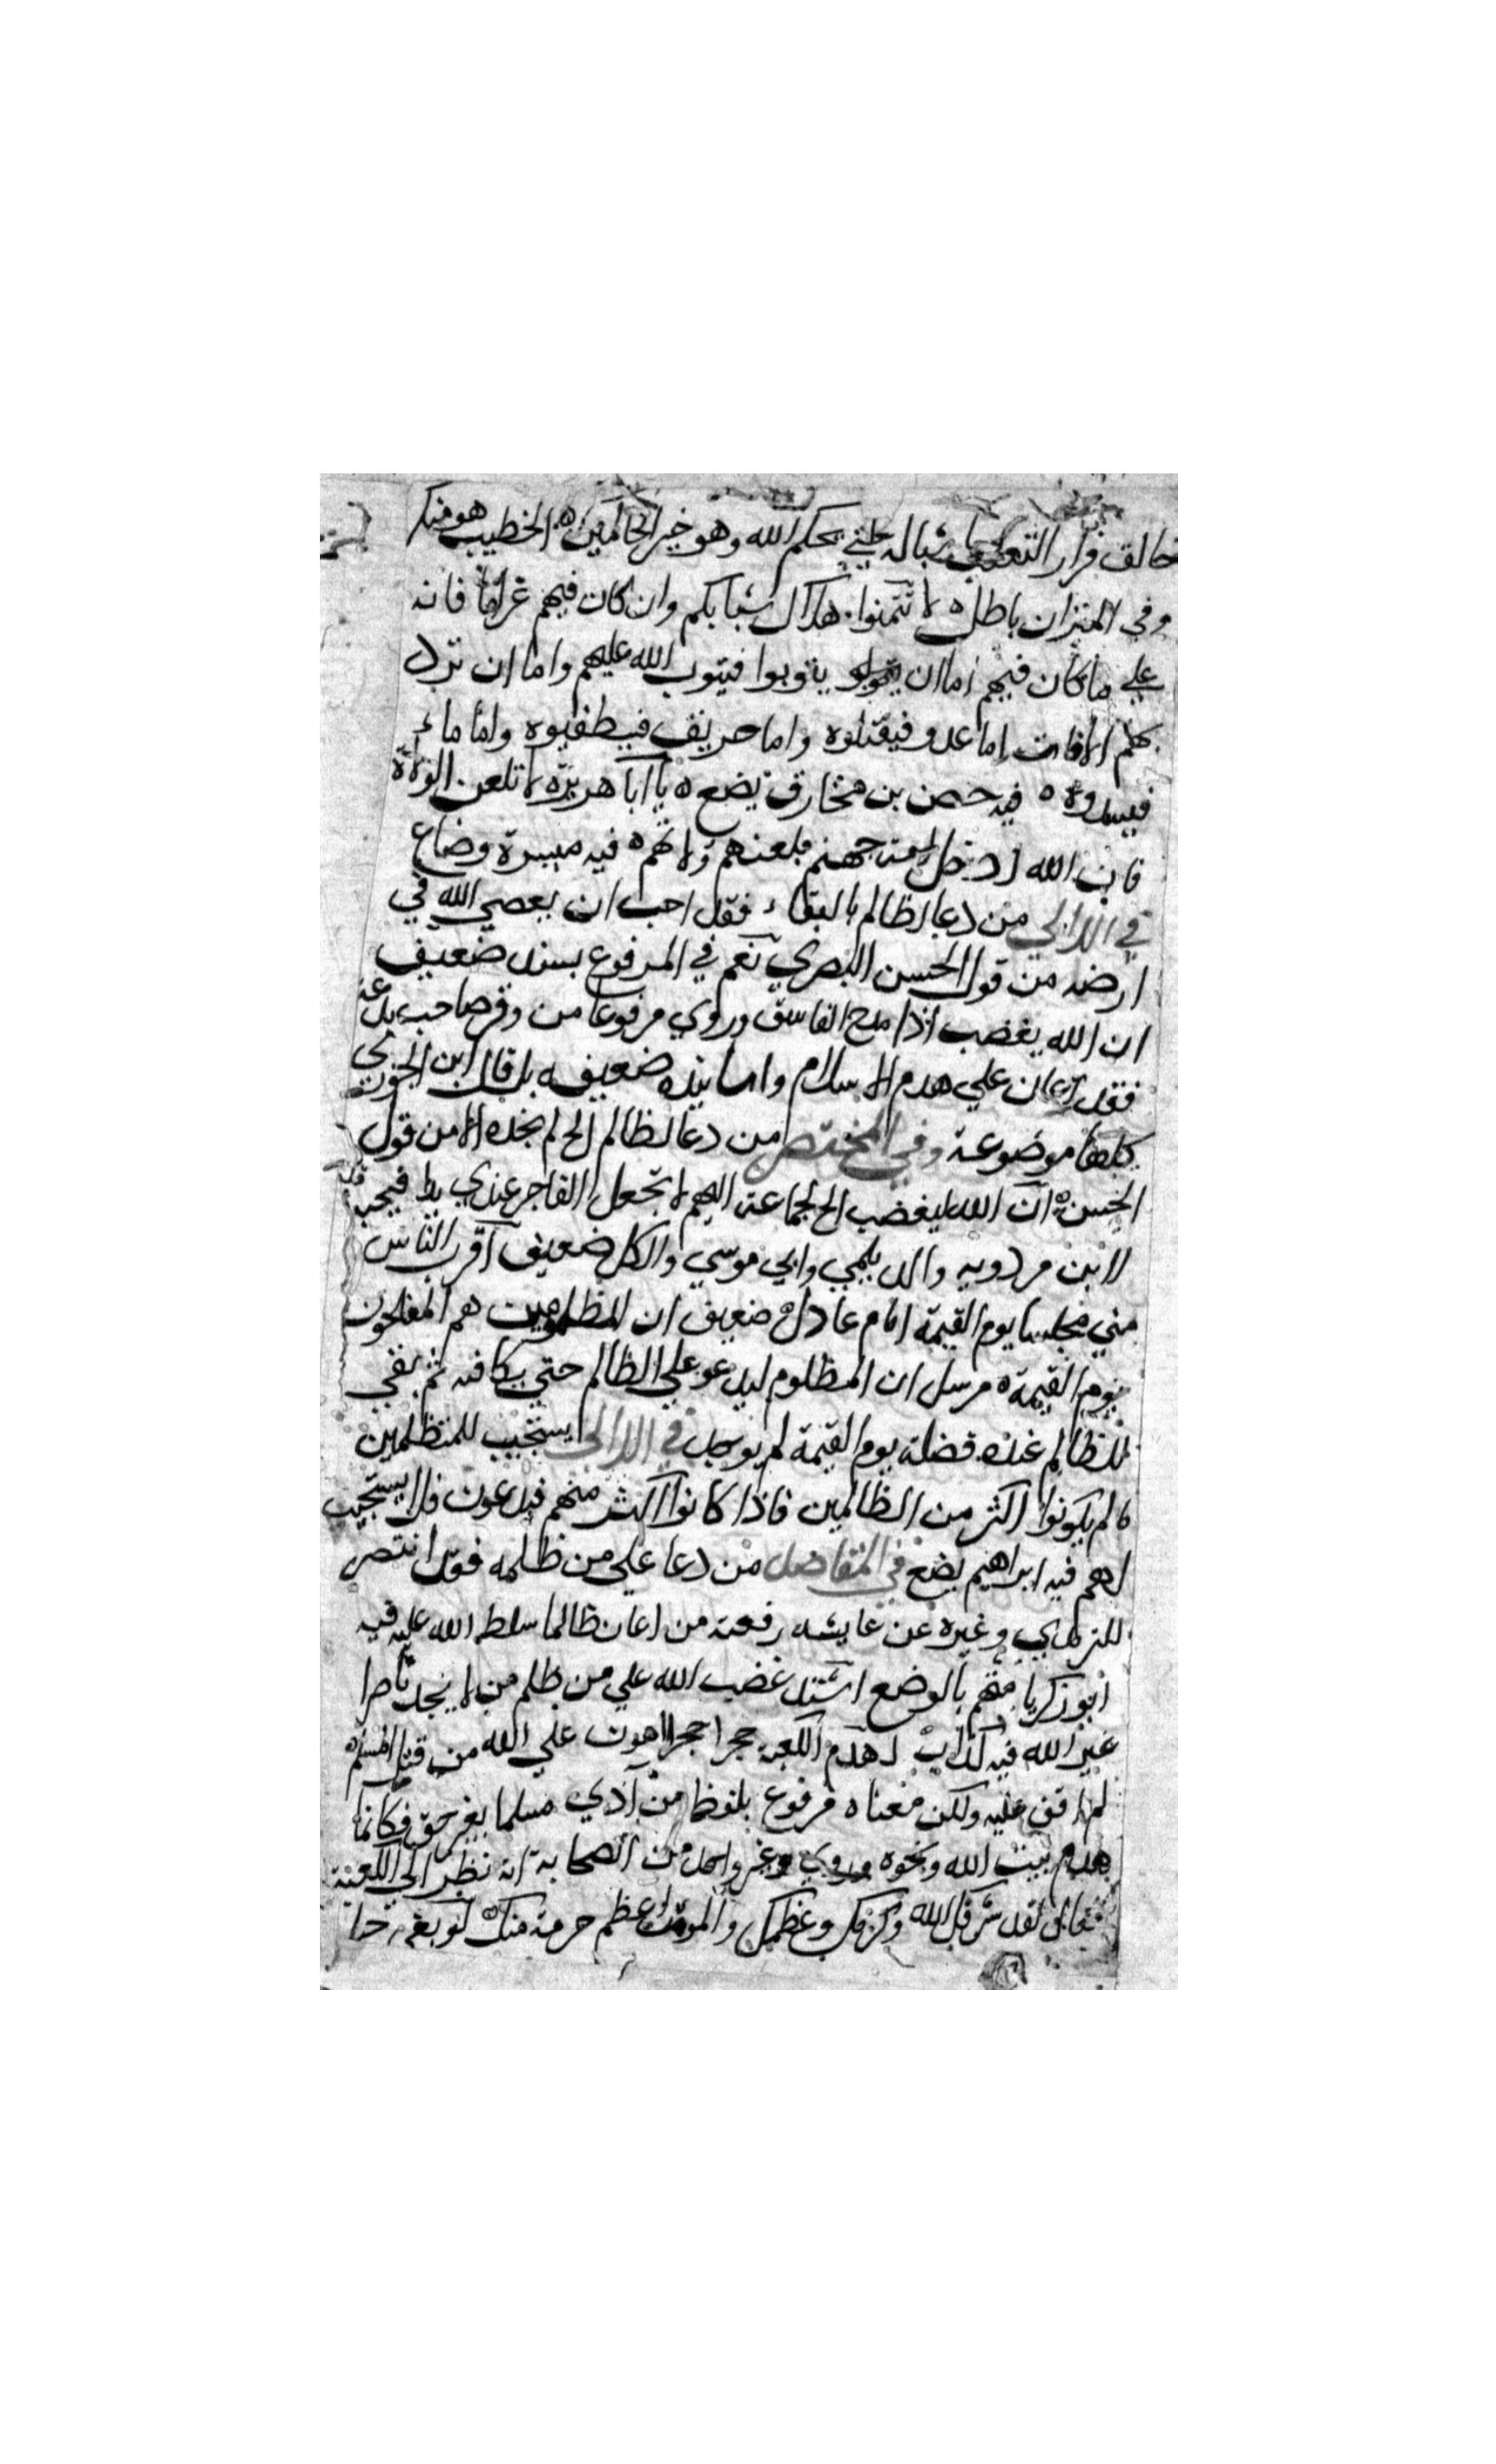 خالق فرار التعكيف بشباله حتي يحكم الله وهو خير الحاكمين ه الخطيب هو منكر
وفي الميزان باطل ه لا تتمنوا هلاك شبابكم وان كان فيهم غراما فانه
علي ما كان فيهم اما ان يتوبوا فيتوب الله عليهم واما ان ترد
بهم الافات اما عدو فيقتلوه واما حريق فيطفيوه واما ماء
فيسدوه ه فيه حصن بن مخارق يضع ه يا ابا هريرة لا تلعن الولاة
فان الله ادخل امة جهنم بلعنهم ولاتهم ه فيه ميسرة وضاع
في اللالي من دعا لظالم بالبقاء فقد احب ان يعصي الله في
ارضه من قول الحسن البصري نعم في المرفوع بسند ضعيف
ان الله يغضب اذا مدح الفاسق وروي مرفوعا من وقر صاحب بدعة
فقد اعان علي هدم الاسلام واسانيده ضعيفه بل قال ابن الجوزي
كلها موضوعة وفي المختصر من دعا لظالم الخ لم نجده الا من قول
الحسن ه ان الله ليغضب الخ لجماعة اللهم لا تجعل الفاجر عندي يدا فيحبه قلبي
لابن مردويه والديلمي وابي موسي والكل ضعيف اقرب الناس
مني مجلسا يوم القيمة امام عادل ه ضعيف ان المظلومين هم المفلحون
يوم القيمة ه مرسل ان المظلوم ليدعو علي الظالم حتي يكافئه ثم يبقي
للظالم عنده فضلة يوم القيمة لم يوجد في اللالي يستجيب للمتظلمين
ما لم يكونوا اكثر من الظالمين فاذا كانوا اكثر منهم فيدعون فلا يستجيب
لهم فيه ابراهيم يضع في المقاصد من دعا علي من ظلمه فقد انتصر
للترمذي وغيره عن عايشه رفعته من اعان ظالما سلطه الله عليه فيه
ابو زكريا متهم بالوضع اشتد غضب الله علي من ظلم من لا يجد ناصرا
غير الله فيه كذاب لهدم الكعبة حجرا حجرا اهون علي الله من قتل المسلم ه
لم اقف عليه ولكن معناه مرفوع بلفظ من آذي مسلما بغير حق فكانما
هدم بيت الله ونحوه وروي وغير واحد من الصحابة انه نظر الي الكعبة
فقال لقد شرفك الله وكرمك وعظمك والمومن اعظم حرمة منك ه لو بغي